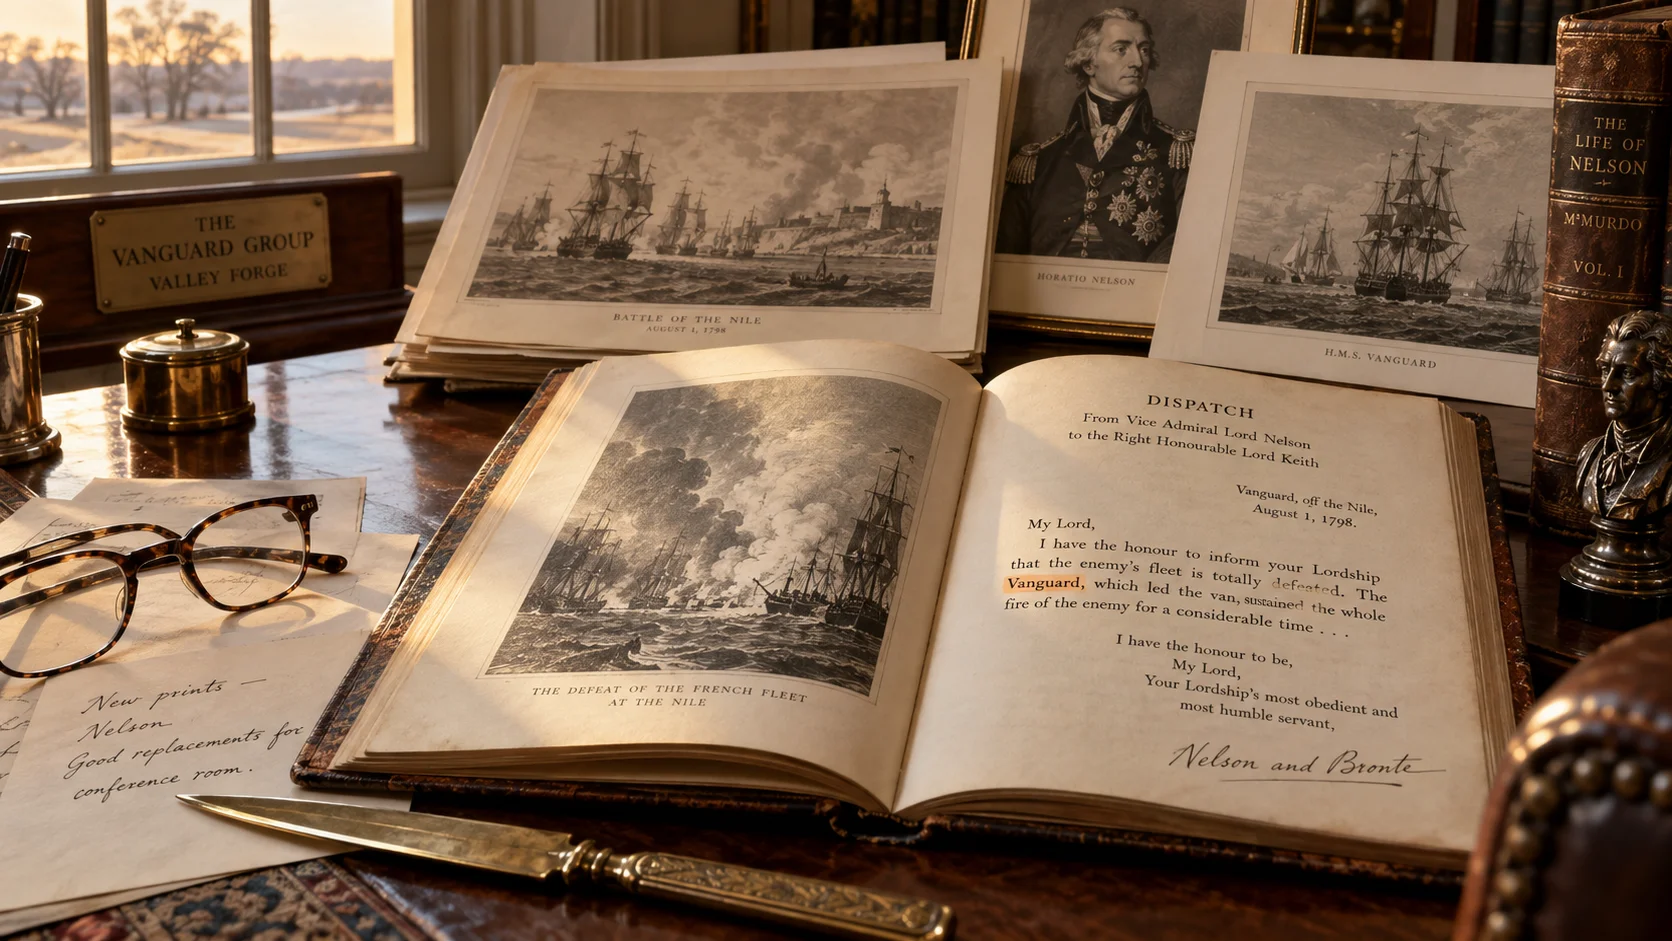 THE
VANGUARD GROUP
VALLEY FORGE
BATTLE OF THE NILE
AUGUST 1, 1798
HORATIO NELSON
H.M.S. VANGUARD
THE
LIFE OF
NELSON
MᶜMURDO
VOL. I
THE DEFEAT OF THE FRENCH FLEET
AT THE NILE
DISPATCH
From Vice Admiral Lord Nelson
to the Right Honourable Lord Keith
Vanguard, off the Nile,
August 1, 1798.
My Lord,
I have the honour to inform your Lordship
that the enemy's fleet is totally defeated. The
Vanguard, which led the van, sustained the whole
fire of the enemy for a considerable time . . .
I have the honour to be,
My Lord,
Your Lordship's most obedient and
most humble servant,
Nelson and Bronte
New prints —
Nelson
Good replacements for
conference room.